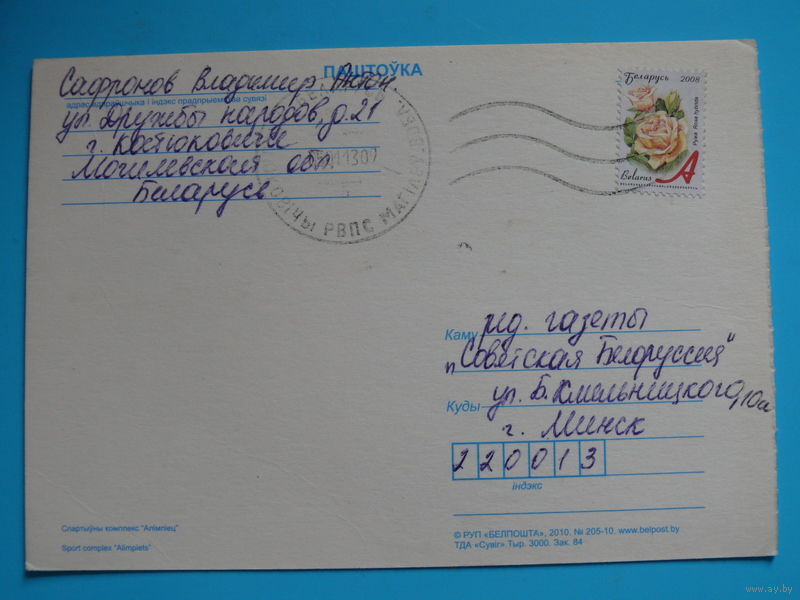 ПАШТОЎКА
Сафронов Владимир Антон.
адрас адпраўшчыка і індэкс прадпрыемства сувязі
ул. Дружбы народов, д. 21
г. Костюковичи
Могилевская обл.
Беларусь
РВПС МАГІЛЁЎ
Беларусь 2008
Ружа Rosa hybrida
Belarus A
Каму ред. газеты
"Советская Белоруссия"
ул. Б. Хмельницкого, 10а
Куды
г. Минск
220013
індэкс
Спартыўны комплекс "Алімпіец"
Sport complex "Alimpiets"
© РУП «БЕЛПОШТА», 2010. № 205-10. www.belpost.by
ТДА «Сувіг». Тыр. 3000. Зак. 84
www.ay.by